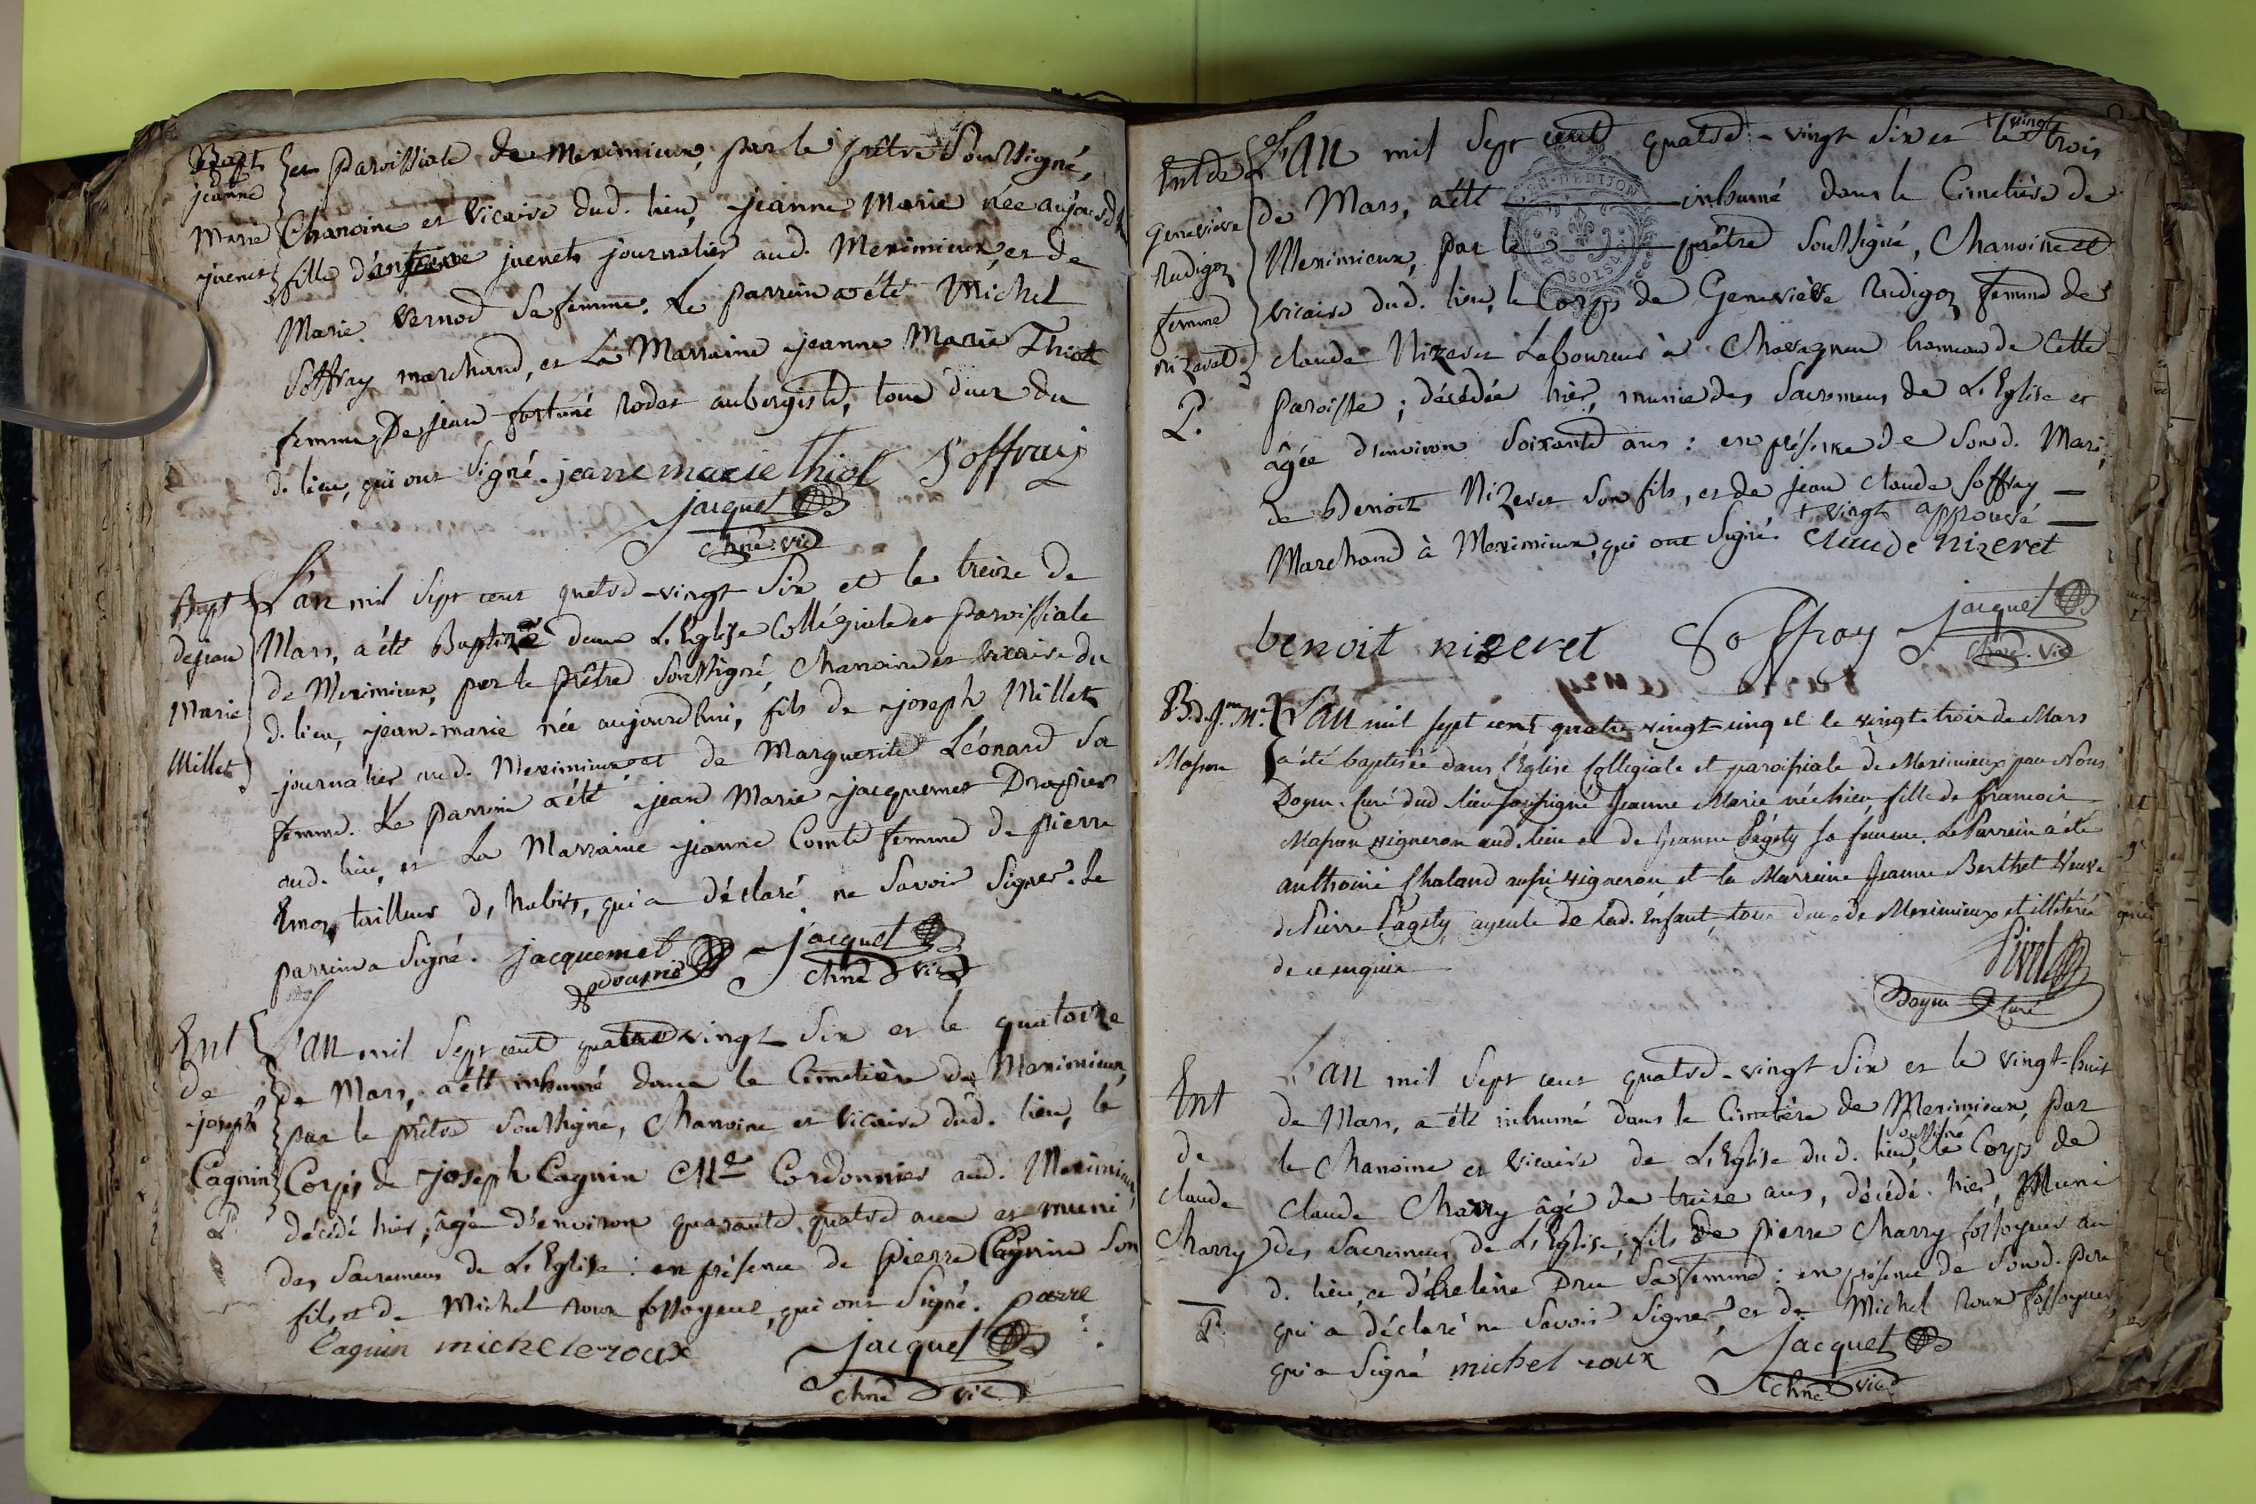 Bapt
jeanne
Marie
juenet
et Paroissiale de Meximieux, par le prêtre Soussigné,
Chanoine et Vicaire dud. lieu, jeanne Marie née aujourd'h
fille d'antoine juenet journalier aud. Meximieux, et de
Marie Vernod Sa femme. Le parrein a été Michel
Soffray marchand, et La Marraine jeanne Marie Thiot
femme De jean fortuné Rodet aubergiste, tous deux du
d. lieu, qui ont Signé. jeanne marie thiot Soffray
jacquet
chne. vic
Bapt
de jean
Marie
Millet
L'an mil Sept cent quatre-vingt Six et le treize de
Mars, a été Baptizé dans L'Eglise Collégiale et paroissiale
de Meximieux, par le prêtre Soussigné, Chanoine et Vicaire du
d. lieu, jean-marie née aujourdhui, fils de joseph Millet
journalier aud. Meximieux et de Marguerite Léonard Sa
femme. Le parrein a été jean Marie jacquemet Drapier
aud. lieu, et La Marraine jeanne Comte femme de pierre
tailleur d'habits, qui a déclaré ne Savoir Signer. Le
parrein a Signé. jacquemet jacquet
chne vic
Ent
de
joseph
Cagnin
P.
L'an mil Sept cent quatre vingt Six et le quatorze
de Mars, a été inhumé dans le Cimetière de Meximieux,
par le prêtre Soussigné, Chanoine et Vicaire dud. lieu, le
Corps de joseph Cagnin Me Cordonnier aud. Meximieux,
décédé hier, âgé d'environ quarante quatre ans et muni
des Sacremens de L'Eglise : en présence de pierre Cagnin Son
fils et de Michel roux fossoyeur, qui ont Signé. pierre
Caguin michel roux jacquet
chne vic
Ent de
Geneviève
Rudigoz
femme
nizeret
P.
L'an mil Sept cent quatre-vingt Six et le + vingt trois
de Mars, a été inhumé dans le Cimetière de
Meximieux, par le prêtre Soussigné, Chanoine et
vicaire dud. lieu, le Corps de Geneviève Rudigoz femme de
claude Nizeret Laboureur à Chavagneu hameau de Cette
paroisse ; décédée hier, munie des Sacremens de L'Eglise et
âgée d'environ Soixante ans : en présence de Sond. Mari,
de Benoit Nizeret Son fils, et de jean claude Soffray
Marchand à Meximieux, qui ont Signé. + vingt approuvé
claude nizeret
benoit nizeret Soffray jacquet
chne. vic
B. de J.ne M.ie
Masson
L'an mil sept cent quatre vingt-cinq et le vingt-trois de Mars
a été baptisée dans l'Eglise Collegiale et paroissiale de Meximieux par Nous
Doyen-Curé dud lieu soussigné Jeanne Marie née hier, fille de françois
Masson vigneron aud. lieu et de Jeanne Pégoty sa femme. Le Parrein a été
anthoine Chaland aussi vigneron et la Marreine Jeanne Berthet Veuve
de Pierre Pagoty ayeule de Lad. Enfant, tous deux de Meximieux et illiterés
de ce enquis
Doyen Curé
Ent
de
claude
Charry
P.
L'an mil Sept cent quatre-vingt Six et le vingt-huit
de Mars, a été inhumé dans le Cimetière de Meximieux, par
le Chanoine et Vicaire de L'Eglise dud. lieu, soussigné le Corps de
Claude Charry âgé de treize ans, décédé hier, Muni
des Sacremens de L'Eglise, fils de pierre Charry fossoyeur au
d. lieu, et d'helene Dru Sa femme : en présence de Sond. pere
qui a déclaré ne Savoir Signer, et de Michel roux fossoyeur,
qui a Signé michel roux jacquet
chne vic